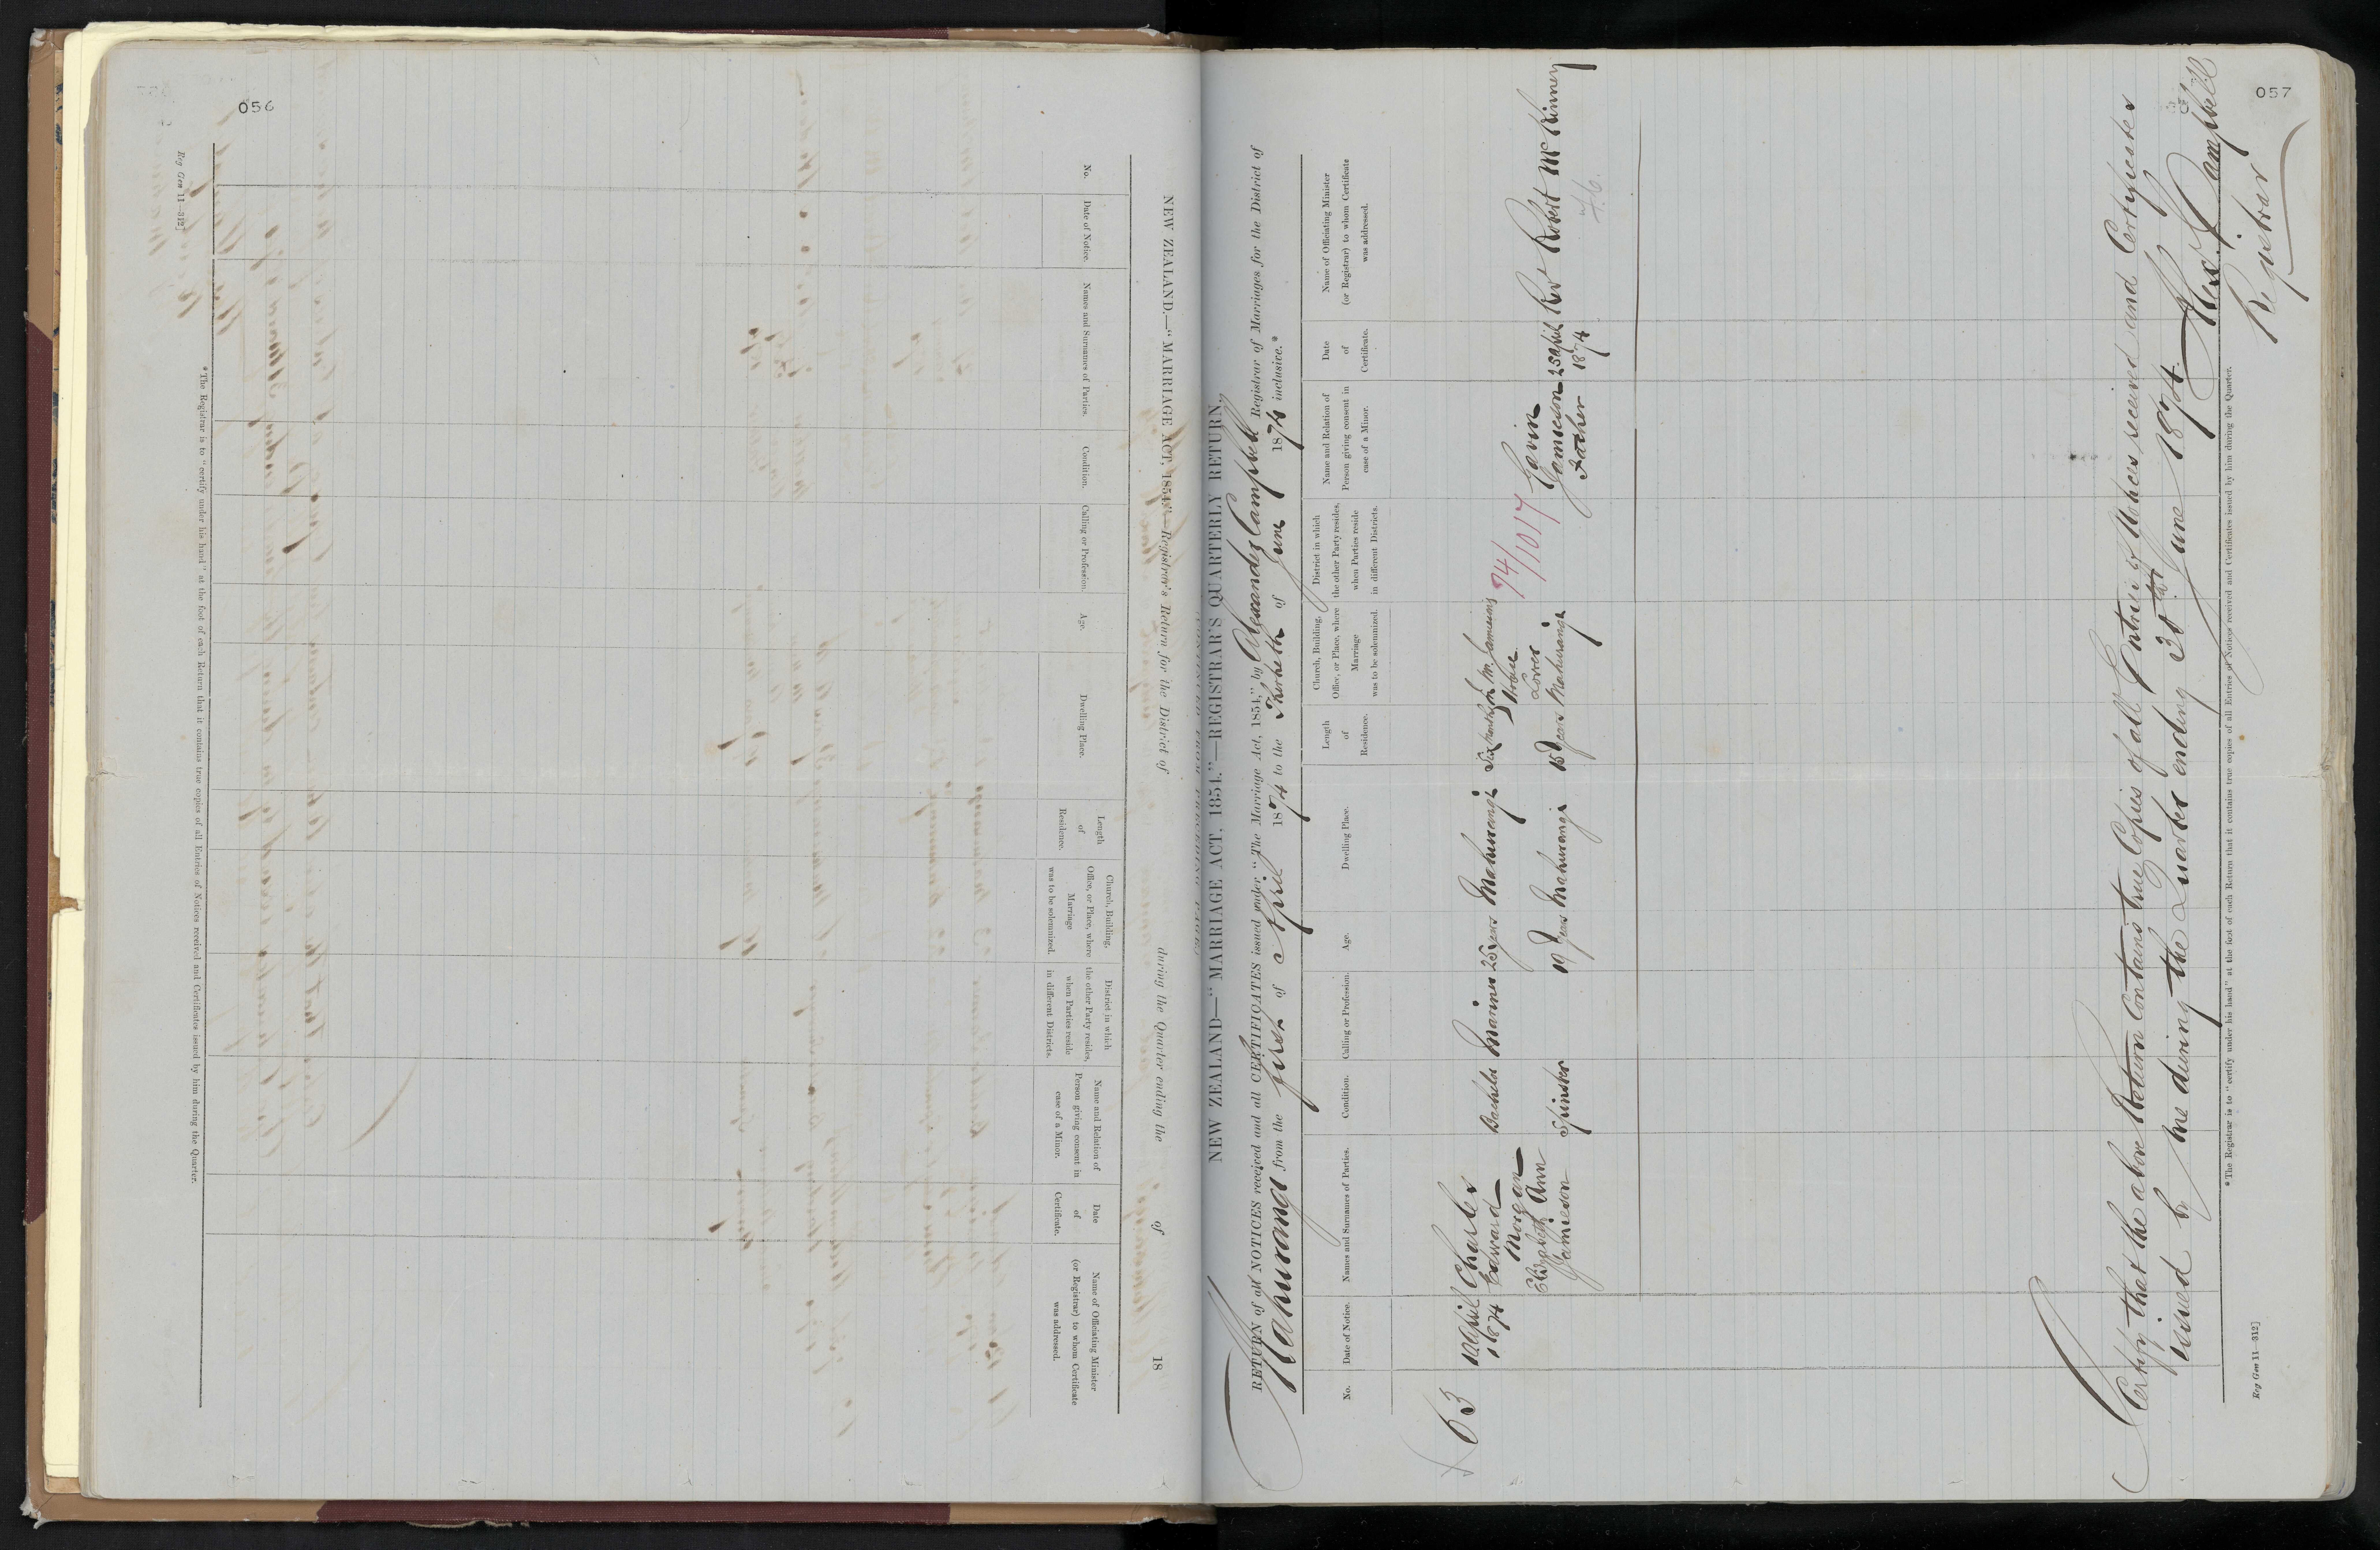 056
NEW ZEALAND.—"MARRIAGE ACT, 1854."—Registrar's Return for the District of during the Quarter ending the of 18
No.
Date of Notice.
Names and Surnames of Parties.
Condition.
Calling or Profession.
Age.
Dwelling Place.
Length
of
Residence.
Church, Building,
Office, or Place, where
Marriage
was to be solemnized.
District in which
the other Party resides,
when Parties reside
in different Districts.
Name and Relation of
Person giving consent in
case of a Minor.
Date
of
Certificate.
Name of Officiating Minister
(or Registrar) to whom Certificate
was addressed.
* The Registrar is to "certify under his hand" at the foot of each Return that it contains true copies of all Entries of Notices received and Certificates issued by him during the Quarter.
Reg Gen 11—312]
057
NEW ZEALAND—"MARRIAGE ACT, 1854."—REGISTRAR'S QUARTERLY RETURN.
RETURN of all NOTICES received and all CERTIFICATES issued under "The Marriage Act, 1854," by Alexander Campbell Registrar of Marriages for the District of
Mahurangi from the first of April 1874 to the Thirtieth of June 1874 inclusive.*
No.
Date of Notice.
Names and Surnames of Parties.
Condition.
Calling or Profession.
Age.
Dwelling Place.
Length
of
Residence.
Church, Building,
Office, or Place, where
Marriage
was to be solemnized.
District in which
the other Party resides,
when Parties reside
in different Districts.
Name and Relation of
Person giving consent in
case of a Minor.
Date
of
Certificate.
Name of Officiating Minister
(or Registrar) to whom Certificate
was addressed.
63
April
1874
Charles
Edward
Morgan
Bachelor
Mariner
25 years
Mahurangi
Six Months
Mr. Jamiesons
House
Lower
Mahurangi
74/1017
Elizabeth Ann
Jamieson
Spinster
19 years
Mahurangi
years
Gavin
Jamieson
Father
25 April
1874
Rev Robert McKinney
Certify that the above Return Contains true Copies of all Entries of Notices received and Certificates
issued by me during the Quarter ending 30th June 1874
Alexr. Campbell
Registrar
* The Registrar is to "certify under his hand" at the foot of each Return that it contains true copies of all Entries of Notices received and Certificates issued by him during the Quarter.
Reg Gen 11—312]